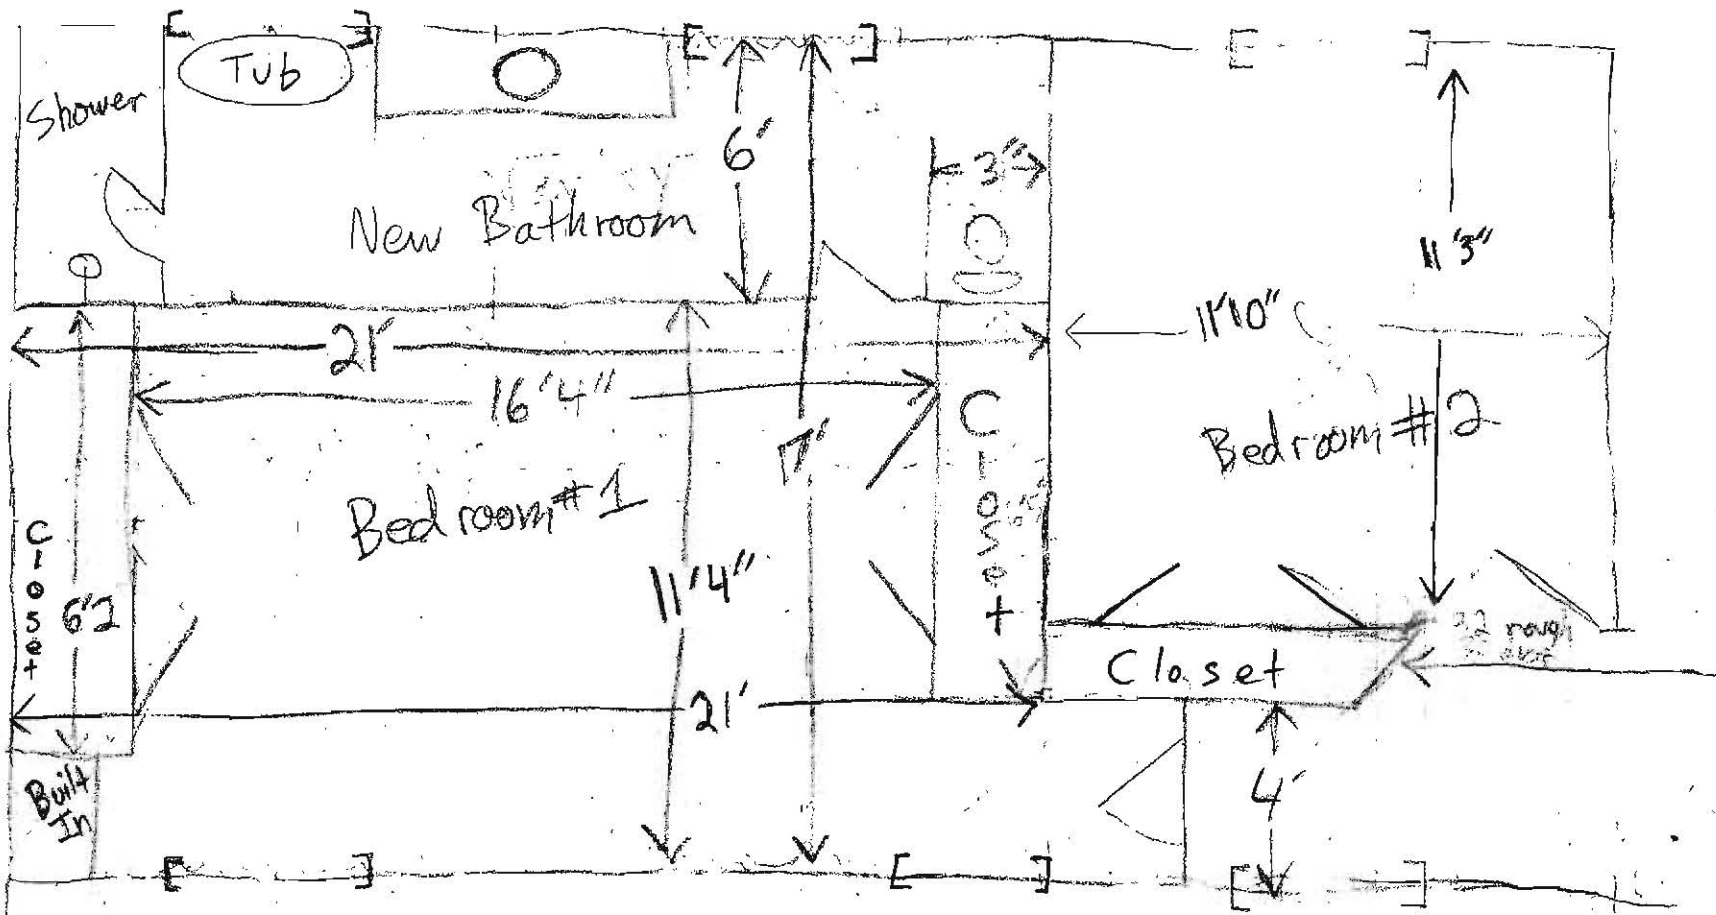 Tub
Shower
6'
3"
New Bathroom
11'3"
21'
11'10"
16'4"
Closet
17'
Bedroom #2
Bedroom #1
Closet
6'2
11'4"
rough
Closet
21'
4'
Built
In